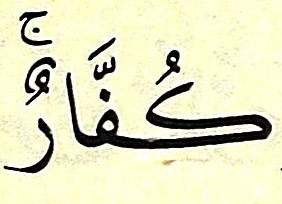 كُفَّارٌ ۚ